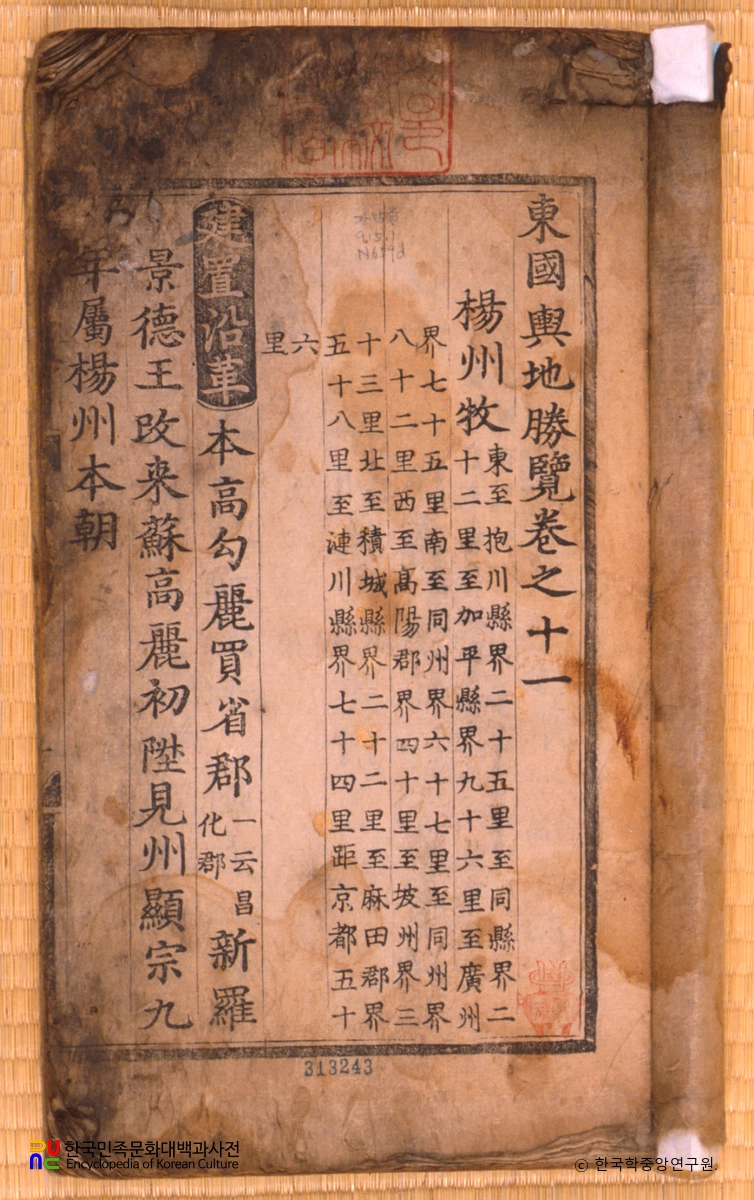 東國輿地勝覽卷之十一
楊州牧東至抱川縣界二十五里至同縣界二
十二里至加平縣界九十六里至廣州
界七十五里南至同州界六十七里至同州界
八十二里西至高陽郡界四十里至坡州界三
十三里北至積城縣界二十二里至麻田郡界
五十八里至漣川縣界七十四里距京都五十
六
里
建置沿革 本高勾麗買省郡一云昌化郡新羅
景德王改来蘇高麗初陞見州顯宗九
年屬楊州本朝
313243
한국민족문화대백과사전
Encyclopedia of Korean Culture
© 한국학중앙연구원.